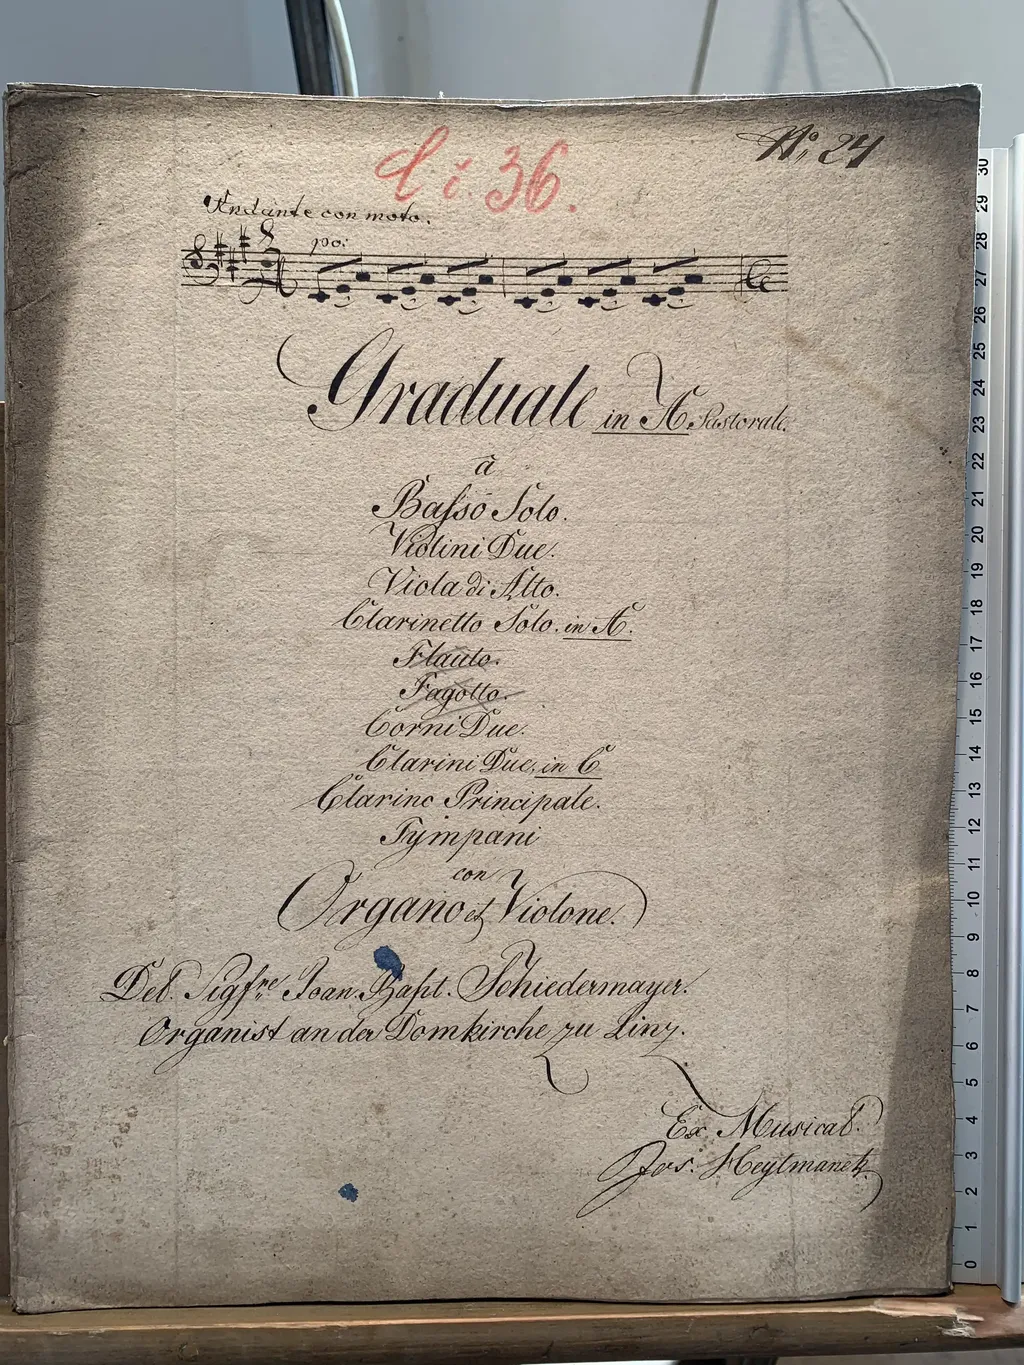 Nº 24
č. 36.
Andante con moto.
po:
Graduale in A Pastorale.
à
Basso Solo.
Violini Due.
Viola di Alto.
Clarinetto Solo. in A.
Flauto.
Fagotto.
Corni Due.
Clarini Due, in C
Clarino Principale.
Tympani
con
Organo et Violone.
Del. Sigfre Joan. Bapt. Schiedermayer.
Organist an der Domkirche zu Linz.
Ex Musical.
Jos. Heytmanek
30
29
28
27
26
25
24
23
22
21
20
19
18
17
16
15
14
13
12
11
10
9
8
7
6
5
4
3
2
1
0